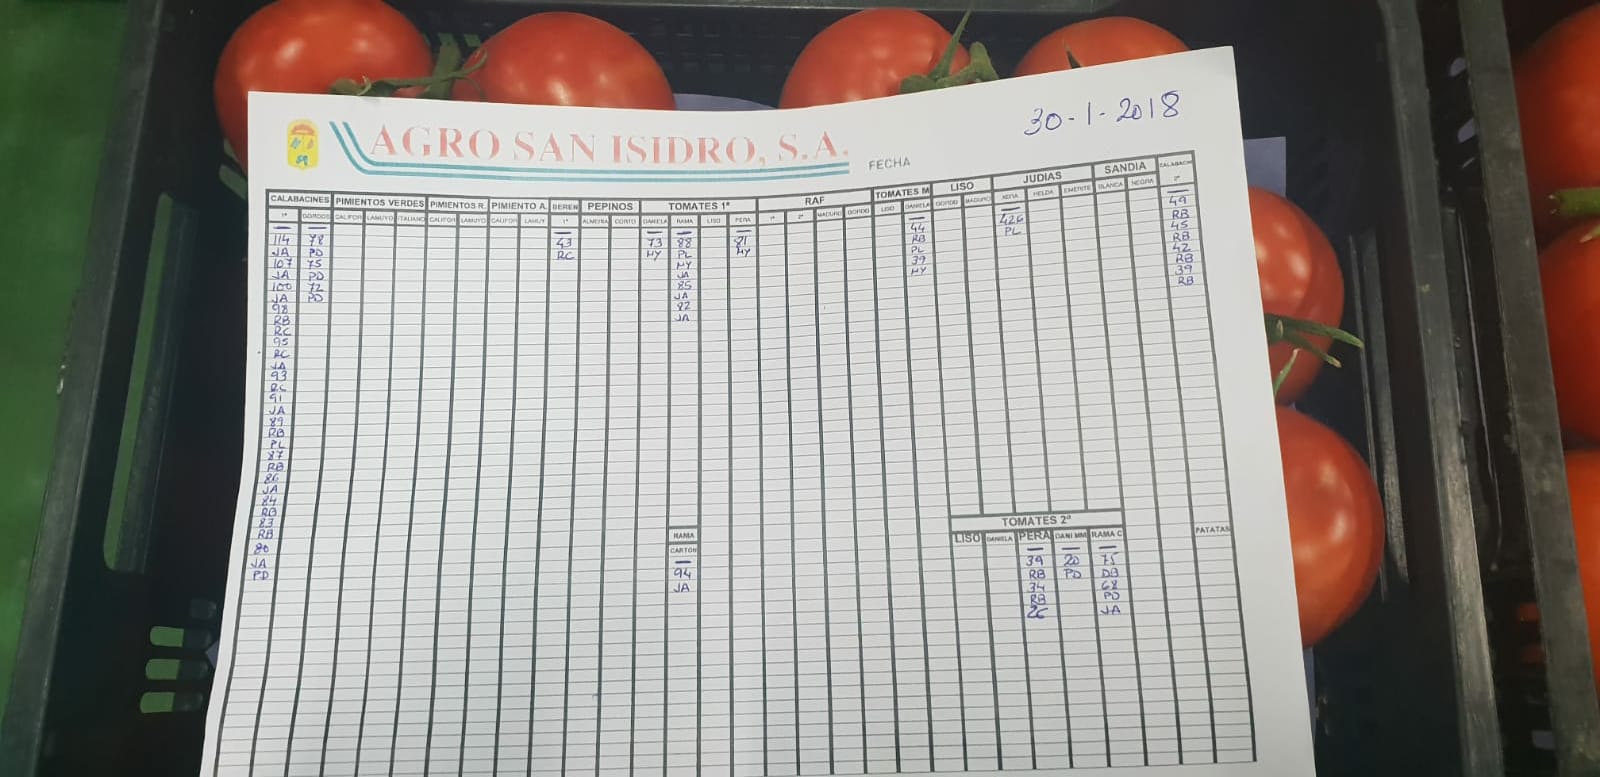 AGRO SAN ISIDRO, S.A.
FECHA
30-1-2018
CALABACINES PIMIENTOS VERDES PIMIENTOS R. PIMIENTO A. BEREN PEPINOS TOMATES 1ª RAF TOMATES M LISO JUDIAS SANDIA CALABACIN
1ª GORDOS CALIFOR LAMUYO ITALIANO CALIFOR LAMUYO CALIFOR LAMUY 1ª ALMERIA CORTO DANIELA RAMA LISO PERA 1ª 2ª MADURO GORDO LISO DANIELA GORDO MADURO HELDA EMERITE BLANCA NEGRA 2ª
114
JA
107
JA
100
JA
98
RB
RC
95
RC
JA
93
RC
91
JA
89
RB
PL
87
RB
86
JA
84
RB
83
RB
80
JA
PD
78
PD
75
PD
72
PD
43
RC
73
MY
88
PL
MY
JA
85
JA
82
JA
81
MY
44
RB
PL
39
MY
426
PL
49
RB
45
RB
42
RB
39
RB
RAMA
CARTON
94
JA
TOMATES 2ª
LISO DANIELA PERA DANI MM RAMA C
39
RB
34
RB
26
20
PD
75
DB
68
PD
JA
PATATAS